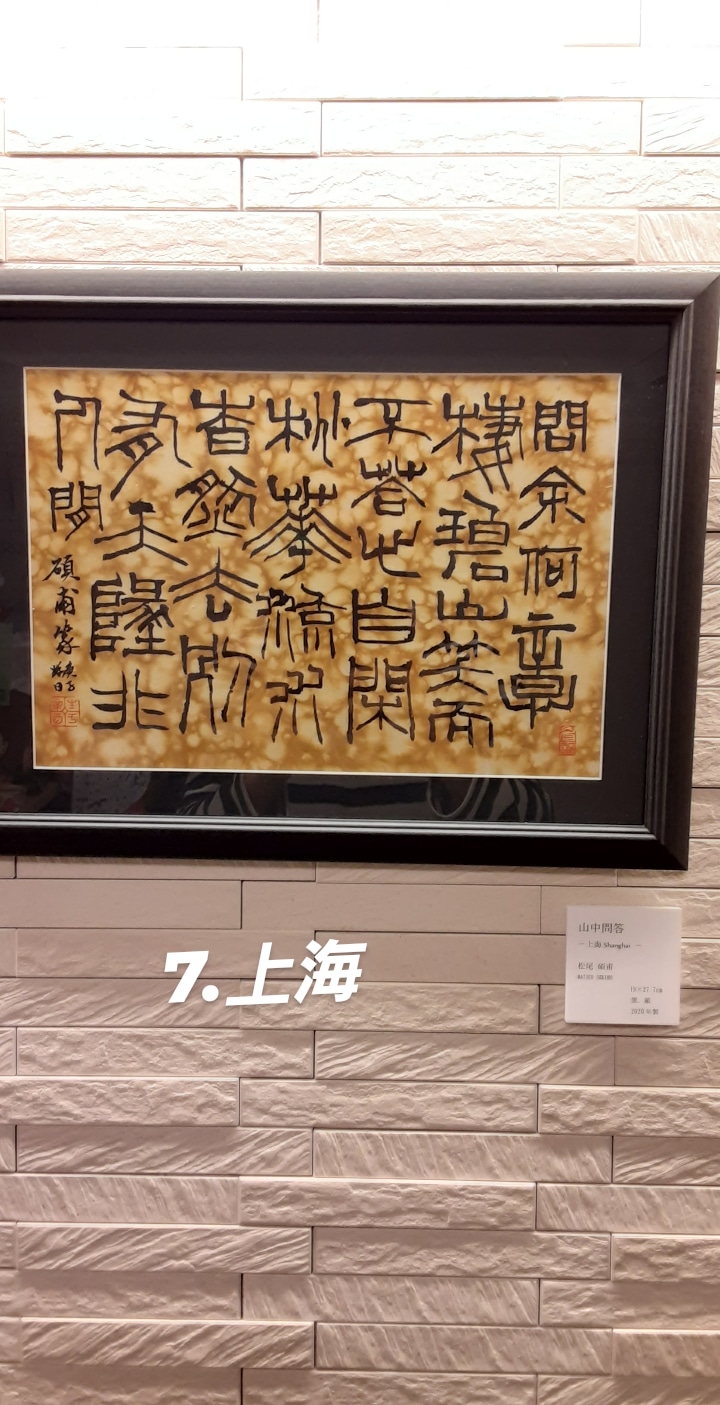 問余何意
棲碧山笑而
不答心自閑
桃華流水
杳然去別
有天地非
人間
碩甫篆
庚子
7.上海
山中問答
－ 上海 Shanghai －
松尾 碩甫
MATSUO SEKIHO
2020年製